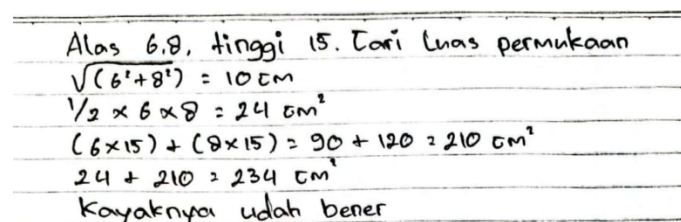 Alas 6.8, tinggi 15. Cari Luas permukaan
√(6²+8²) = 10 cm
1/2 × 6 × 8 = 24 cm²
(6×15) + (8×15) = 90 + 120 = 210 cm²
24 + 210 = 234 cm²
Kayaknya udah bener